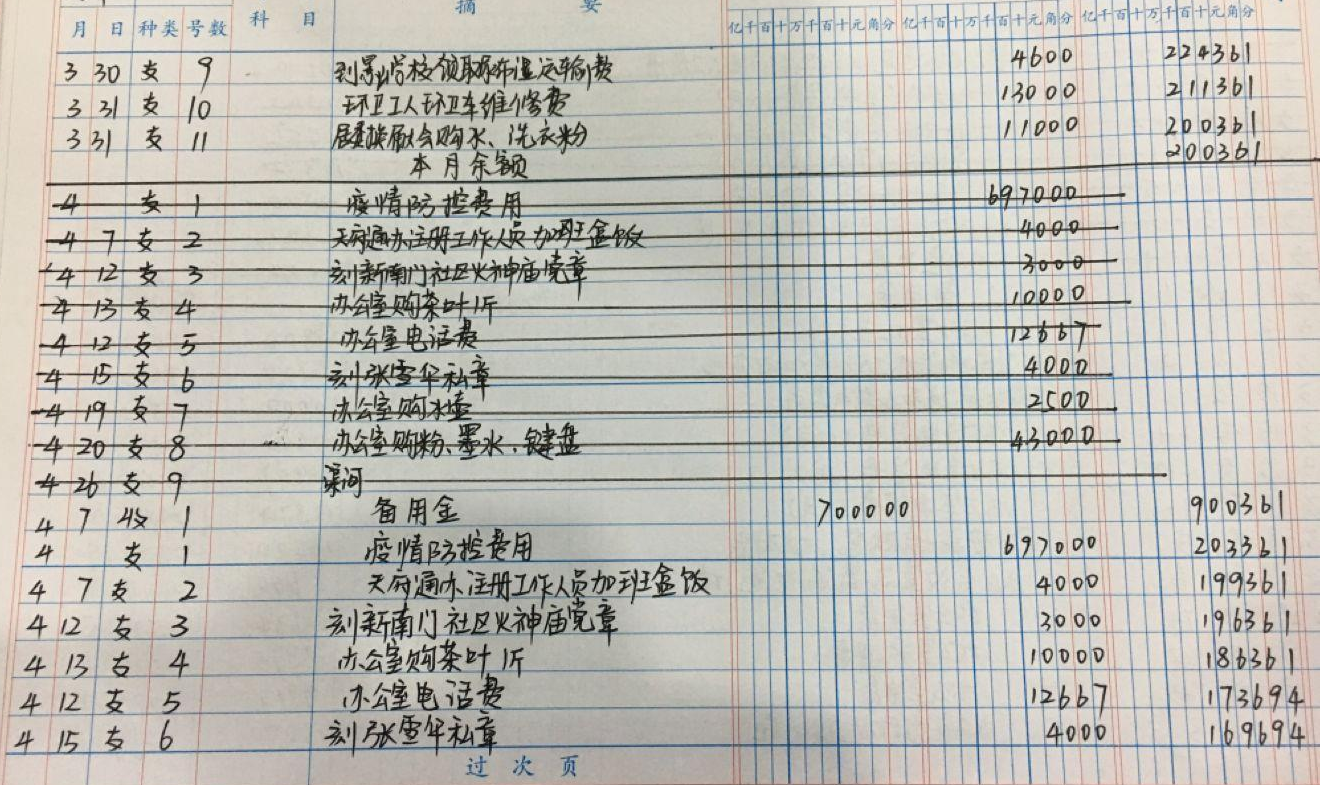 摘 要
月 日 种类 号数 科 目 亿千百十万千百十元角分 亿千百十万千百十元角分 亿千百十万千百十元角分
3 30 支 9 到 学校领取 运输费 4600 224361
3 31 支 10 环卫工人环卫车维修费 13000 211361
3 31 支 11 居委换届会购水、洗衣粉 11000 200361
本月余额 200361
4 支 1 疫情防控费用 697000
4 7 支 2 天府通办注册工作人员加班盒饭 4000
4 12 支 3 刻新南门社区火神庙党章 3000
4 13 支 4 办公室购茶叶1斤 10000
4 12 支 5 办公室电话费 12667
4 15 支 6 刻张雪华私章 4000
4 19 支 7 办公室购水壶 2500
4 20 支 8 办公室购粉、墨水、键盘 43000
4 26 支 9 渠河
4 7 收 1 备用金 700000 900361
4 支 1 疫情防控费用 697000 203361
4 7 支 2 天府通办注册工作人员加班盒饭 4000 199361
4 12 支 3 刻新南门社区火神庙党章 3000 196361
4 13 支 4 办公室购茶叶1斤 10000 186361
4 12 支 5 办公室电话费 12667 173694
4 15 支 6 刻张雪华私章 4000 169694
过次页